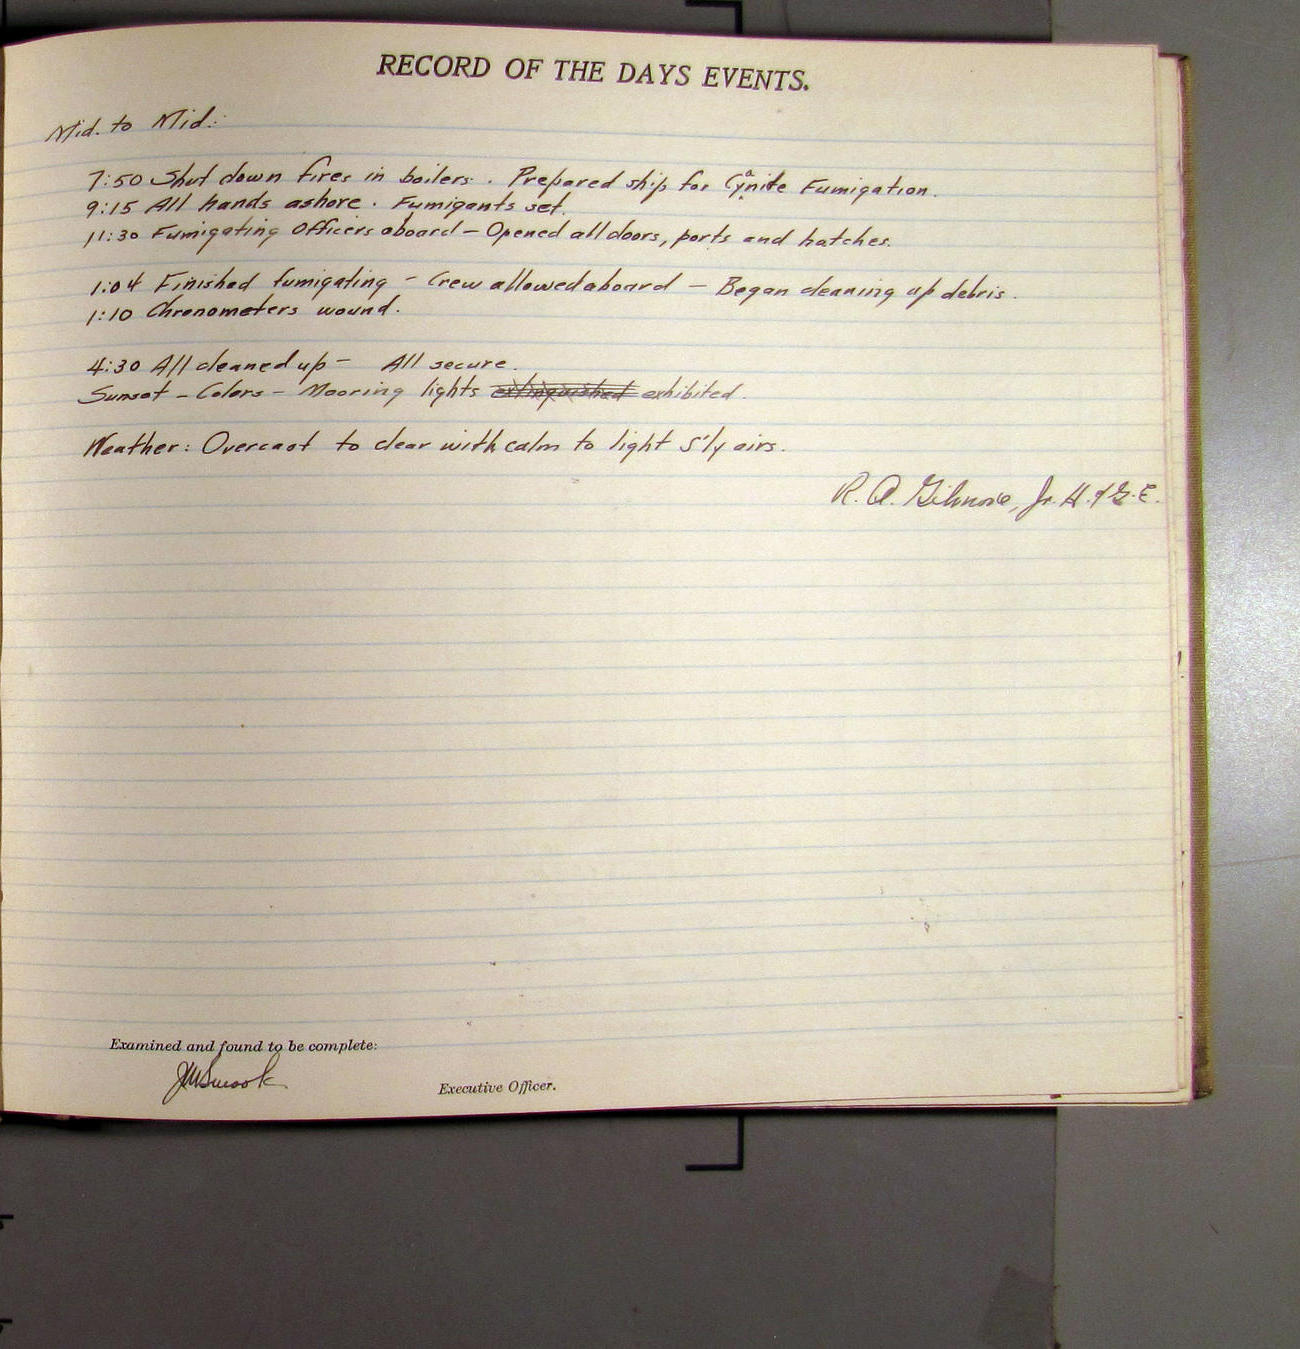 RECORD OF THE DAYS EVENTS.
Mid. to Mid.:
7:50 Shut down fires in boilers. Prepared ship for Cyanite Fumigation.
9:15 All hands ashore. Fumigants set.
11:30 Fumigating Officers aboard – Opened all doors, ports and hatches.
1:04 Finished fumigating – Crew allowed aboard – Began cleaning up debris.
1:10 Chronometers wound.
4:30 All cleaned up – All secure.
Sunset – Colors – Mooring lights extinguished exhibited.
Weather: Overcast to clear with calm to light S'ly airs.
R. A. Gilmore, Jr. H. & G. E.
Examined and found to be complete:
Executive Officer.